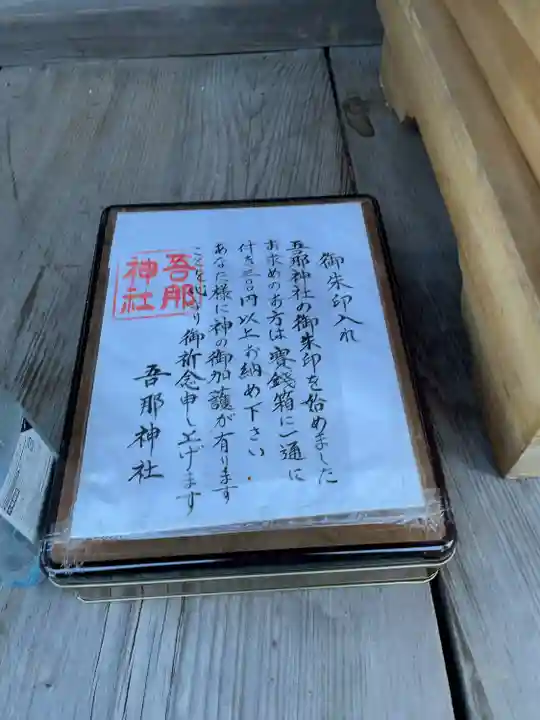 御朱印入れ
吾那神社の御朱印を始めました
お求めのお方は賽銭箱に一通に
付き三〇〇円以上お納め下さい
あなた様に神の御加護が有ります
ことを 御祈念申し上げます
吾那神社
吾那
神社